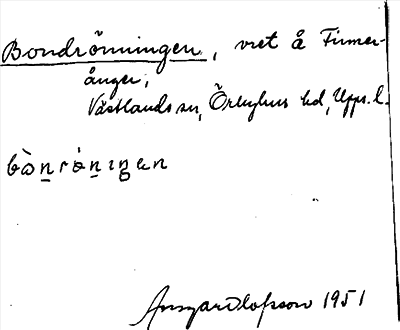 Bondrönningen, vret å Finner-
ånger,
Västlands sn, Örbyhus hd, Upps. l.
bònrò̀nıŋen
Ansgar Olofsson 1951